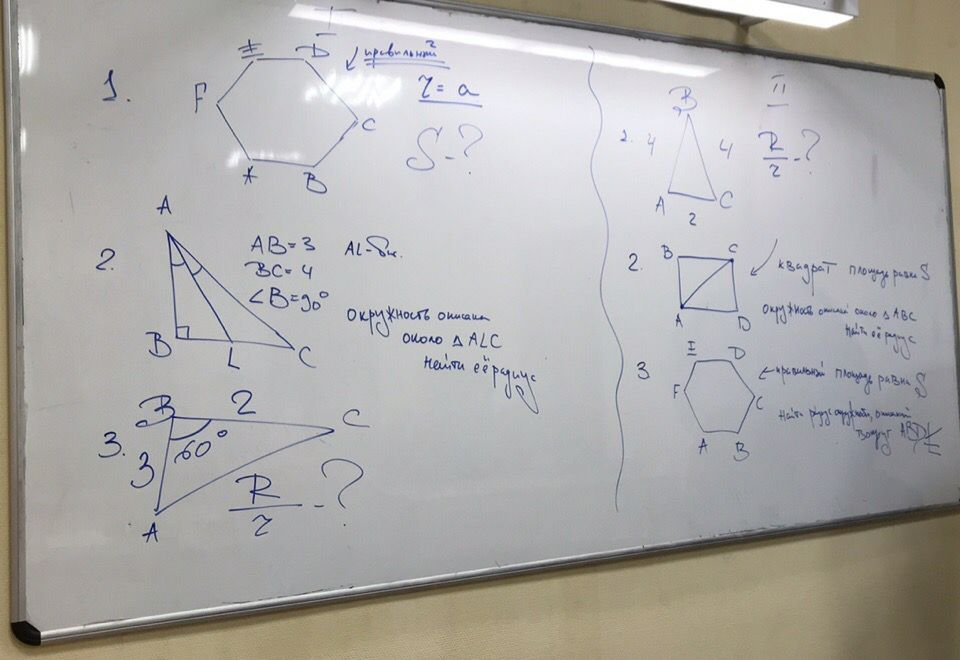 I
1.
E
D
F
C
A
B
правильный
r = a
S - ?
2.
A
B
L
C
AB = 3
BC = 4
∠B = 90°
AL - бис.
окружность описана
около △ ALC
Найти её радиус
3.
B
2
C
60°
3
A
R/r - ?
II
1.
B
4
4
A
2
C
R/r - ?
2.
B
C
A
D
квадрат площадь равна S
окружность описан около △ ABC
Найти её радиус
3
E
D
F
C
A
B
правильный площадь равна S
Найти радиус окружности, описанной
вокруг